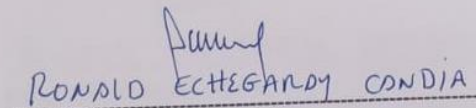 RONALD ECHEGARDY CONDIA